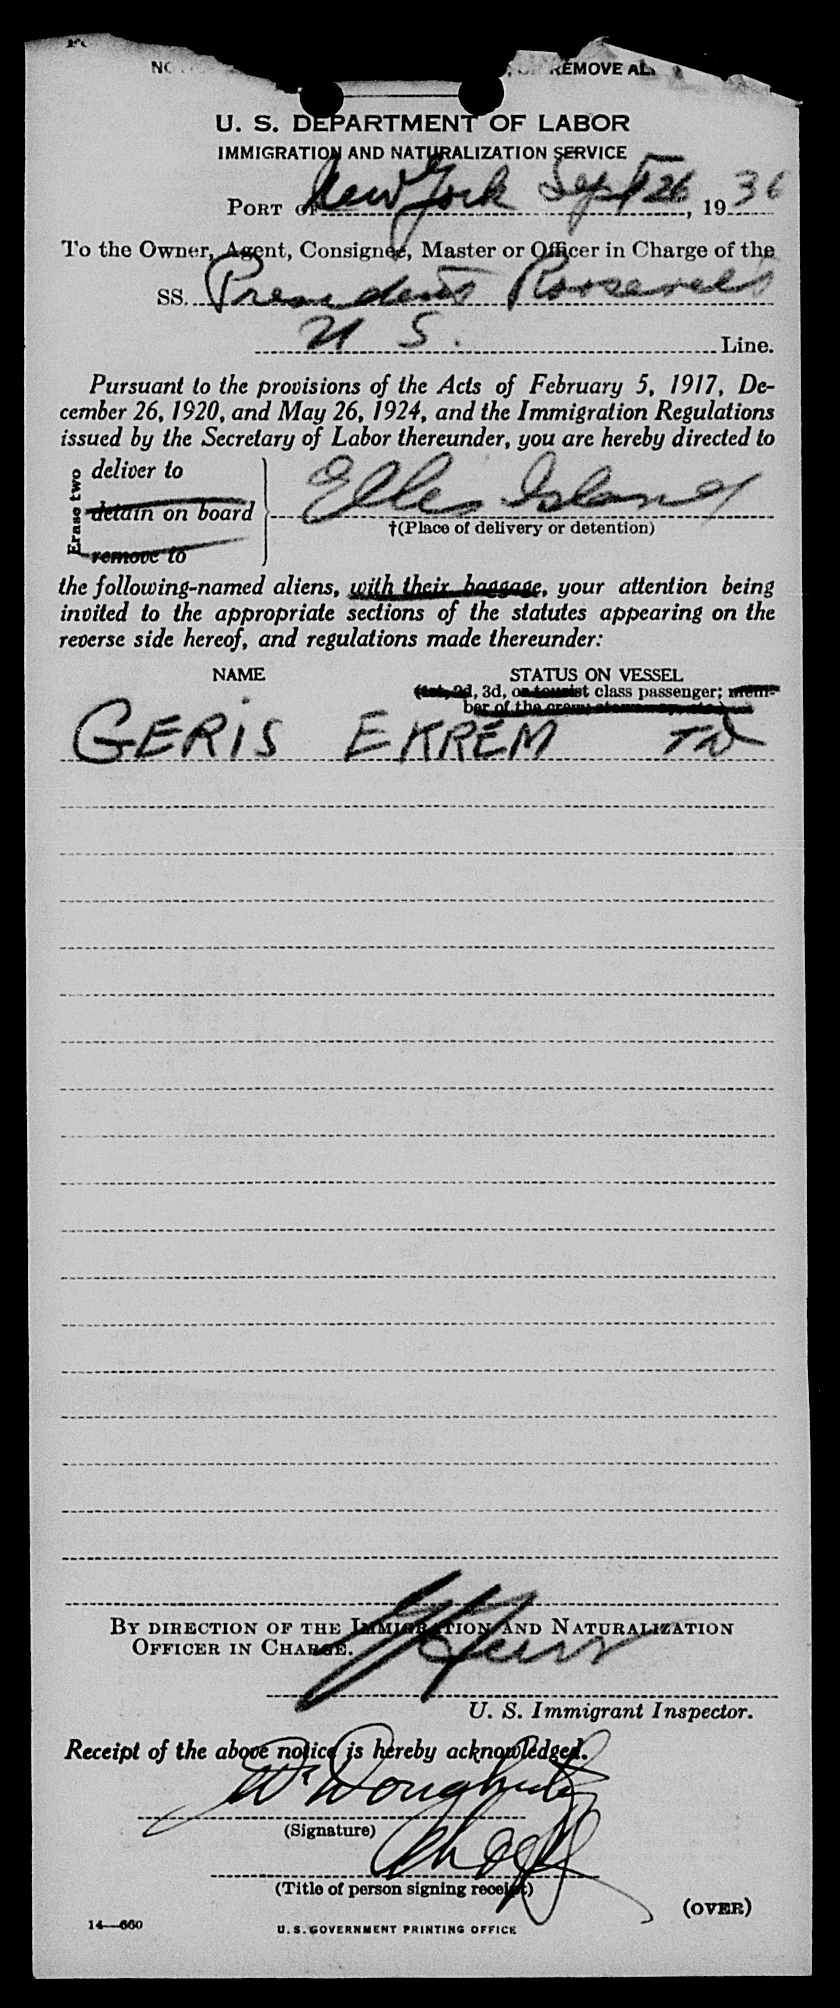 REMOVE AL
U. S. DEPARTMENT OF LABOR
IMMIGRATION AND NATURALIZATION SERVICE
PORT OF New York Sept 26, 1936
To the Owner, Agent, Consignee, Master or Officer in Charge of the
SS. President Roosevelt
U S. Line.
Pursuant to the provisions of the Acts of February 5, 1917, De-
cember 26, 1920, and May 26, 1924, and the Immigration Regulations
issued by the Secretary of Labor thereunder, you are hereby directed to
Erase two
deliver to
detain on board
remove to
Ellis Island
†(Place of delivery or detention)
the following-named aliens, with their baggage, your attention being
invited to the appropriate sections of the statutes appearing on the
reverse side hereof, and regulations made thereunder:
NAME STATUS ON VESSEL
(1st, 2d, 3d, or tourist class passenger; mem-
ber of the crew,
GERIS EKREM
BY DIRECTION OF THE IMMIGRATION AND NATURALIZATION
OFFICER IN CHARGE.
U. S. Immigrant Inspector.
Receipt of the above notice is hereby acknowledged.
(Signature)
(Title of person signing receipt)
(OVER)
14—660
U.S. GOVERNMENT PRINTING OFFICE